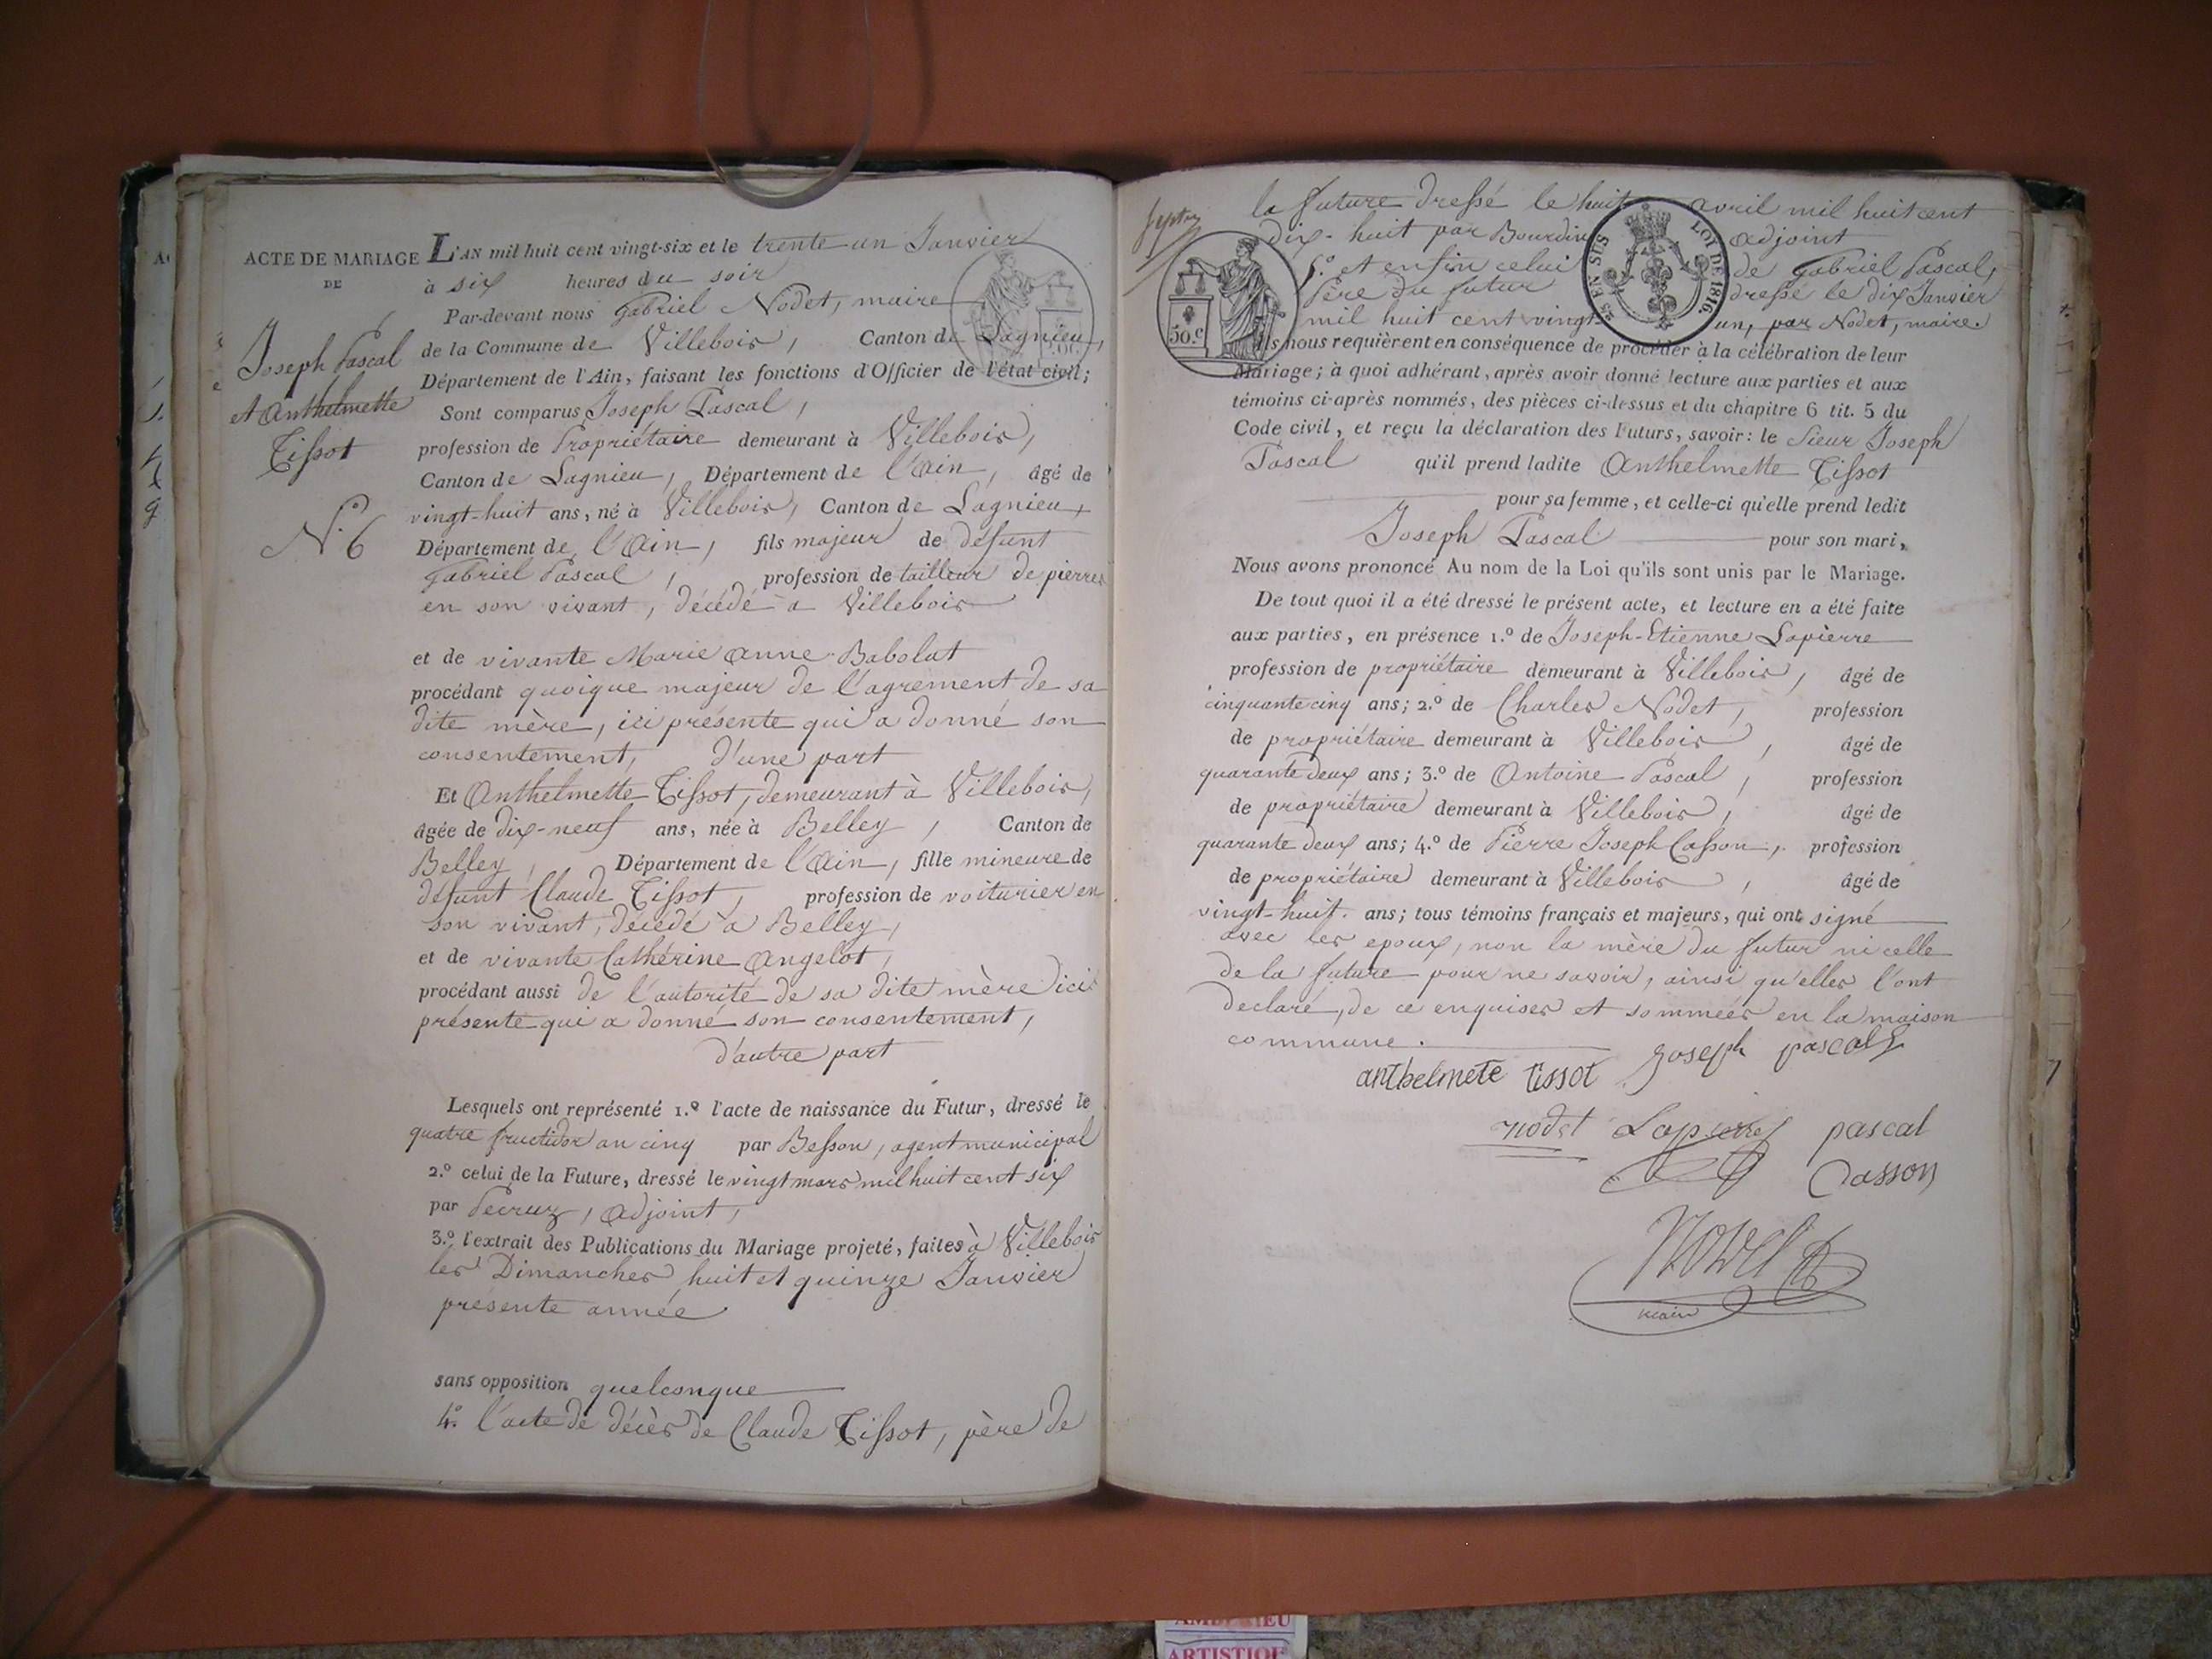 ACTE DE MARIAGE
DE
Joseph Pascal
et Anthelmette
Tissot
N.º 6
L'AN mil huit cent vingt-six et le trente un Janvier
à six heures du soir
Par-devant nous Gabriel Nodet, maire
de la Commune de Villebois, Canton de Lagnieu,
Département de l'Ain, faisant les fonctions d'Officier de l'état civil;
Sont comparus Joseph Pascal,
profession de Propriétaire demeurant à Villebois,
Canton de Lagnieu, Département de l'Ain, âgé de
vingt-huit ans, né à Villebois, Canton de Lagnieu,
Département de l'Ain, fils majeur de défunt
Gabriel Pascal, profession de tailleur de pierres
en son vivant, décédé a Villebois
et de vivante Marie Anne Babolat
procédant quoique majeur de l'agrement de sa
dite mère, ici présente qui a donné son
consentement, d'une part
Et Anthelmette Tissot, demeurant à Villebois,
âgée de dix-neuf ans, née à Belley, Canton de
Belley, Département de l'Ain, fille mineure de
défunt Claude Tissot, profession de voiturier en
son vivant, décédé à Belley,
et de vivante Cathérine Angelot,
procédant aussi de l'autorité de sa dite mère ici
présente qui a donné son consentement,
d'autre part
Lesquels ont représenté 1.º l'acte de naissance du Futur, dressé le
quatre fructidor an cinq par Besson, agent municipal
2.º celui de la Future, dressé le vingt mars mil huit cent six
par Pecruz, Adjoint,
3.º l'extrait des Publications du Mariage projeté, faites à Villebois
les Dimanches huit et quinze Janvier
présente année
sans opposition quelconque
4.º l'acte de décès de Claude Tissot, père de
la future dressé le huit avril mil huit cent
dix-huit par Bourdin adjoint
5.º et enfin celui de Gabriel Pascal,
Père du futur dressé le dix Janvier
mil huit cent vingt-un, par Nodet, maire.
50.c
25 EN SUS
LOI DE 1816.
Ils nous requièrent en conséquence de procéder à la célébration de leur
Mariage; à quoi adhérant, après avoir donné lecture aux parties et aux
témoins ci-après nommés, des pièces ci-dessus et du chapitre 6 tit. 5 du
Code civil, et reçu la déclaration des Futurs, savoir: le Sieur Joseph
Pascal qu'il prend ladite Anthelmette Tissot
pour sa femme, et celle-ci qu'elle prend ledit
Joseph Pascal pour son mari,
Nous avons prononcé Au nom de la Loi qu'ils sont unis par le Mariage.
De tout quoi il a été dressé le présent acte, et lecture en a été faite
aux parties, en présence 1.º de Joseph-Etienne Lapierre
profession de propriétaire demeurant à Villebois, âgé de
cinquante cinq ans; 2.º de Charles Nodet, profession
de propriétaire demeurant à Villebois, âgé de
quarante deux ans; 3.º de Antoine Pascal, profession
de propriétaire demeurant à Villebois, âgé de
quarante deux ans; 4.º de Pierre Joseph Casson, profession
de propriétaire demeurant à Villebois, âgé de
vingt-huit ans; tous témoins français et majeurs, qui ont signé
avec les epoux, non la mère du futur ni celle
de la future pour ne savoir, ainsi qu'elles l'ont
declaré, de ce enquises et sommées en la maison
commune.
anthelmete tissot Joseph pascal
nodet Lapierre pascal
Casson
Nodet
maire
ARTISTIQUE